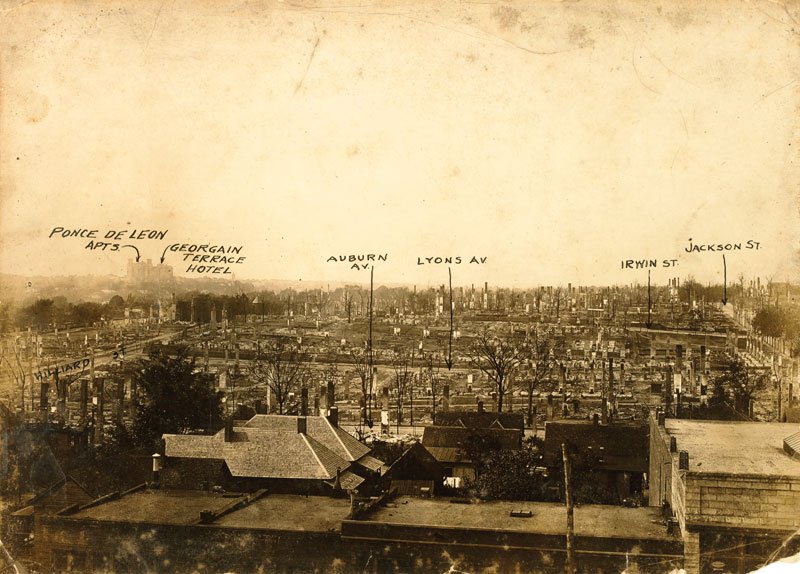 PONCE DE LEON
APTS.
GEORGAIN
TERRACE
HOTEL
AUBURN
AV.
LYONS AV.
IRWIN ST.
JACKSON ST.
HILLIARD ST